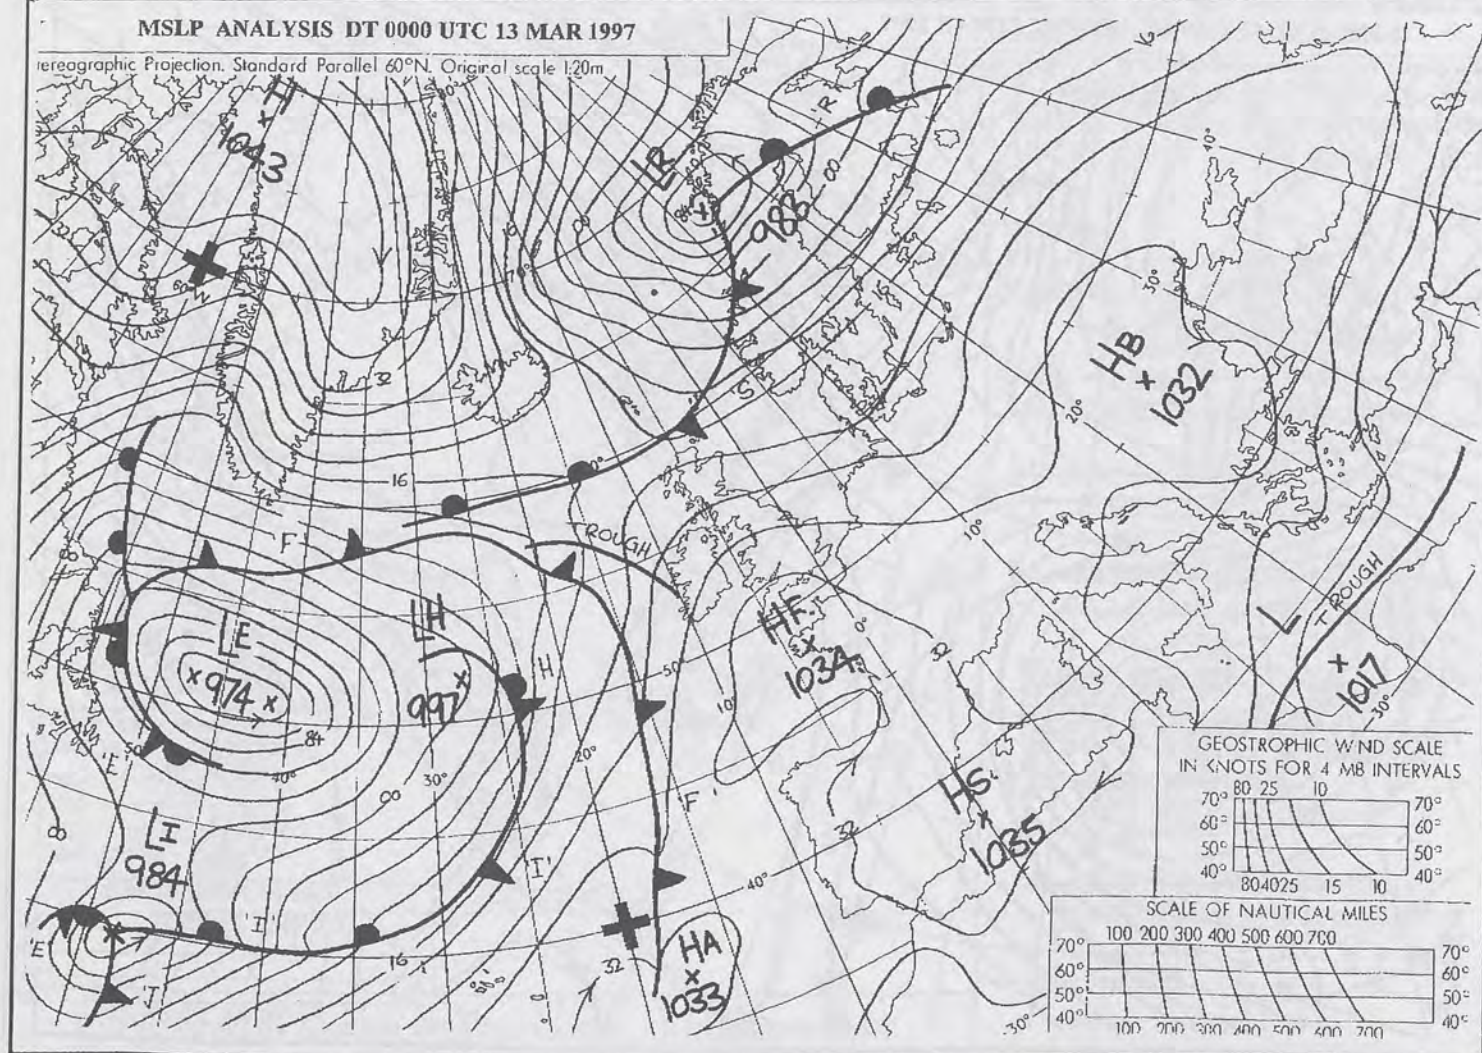 MSLP ANALYSIS DT 0000 UTC 13 MAR 1997
ereographic Projection. Standard Parallel 60°N. Original scale 1:20m
H
1043
LR
983
R
S
32
HB
1032
30°
20°
10°
0°
16
F
TROUGH
TROUGH
LE
974
84
LH
997
H
HF
1034
32
L
1017
30°
50°
10°
20°
30°
40°
'E'
50°
LI
984
'I'
'F'
HS
1035
32
40°
'E
J
'I'
16
32
HA
1033
30°
GEOSTROPHIC WIND SCALE
IN KNOTS FOR 4 MB INTERVALS
80 25 10
70° 70°
60° 60°
50° 50°
40° 40°
80 40 25 15 10
SCALE OF NAUTICAL MILES
100 200 300 400 500 600 700
70° 70°
60° 60°
50° 50°
40° 40°
100 200 300 400 500 600 700